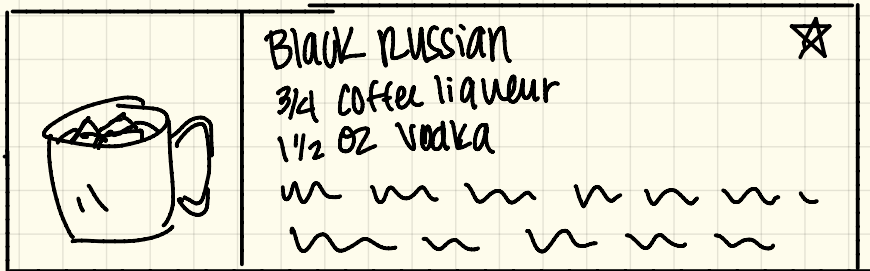 Black Russian
3/4 coffee liqueur
1 1/2 oz vodka